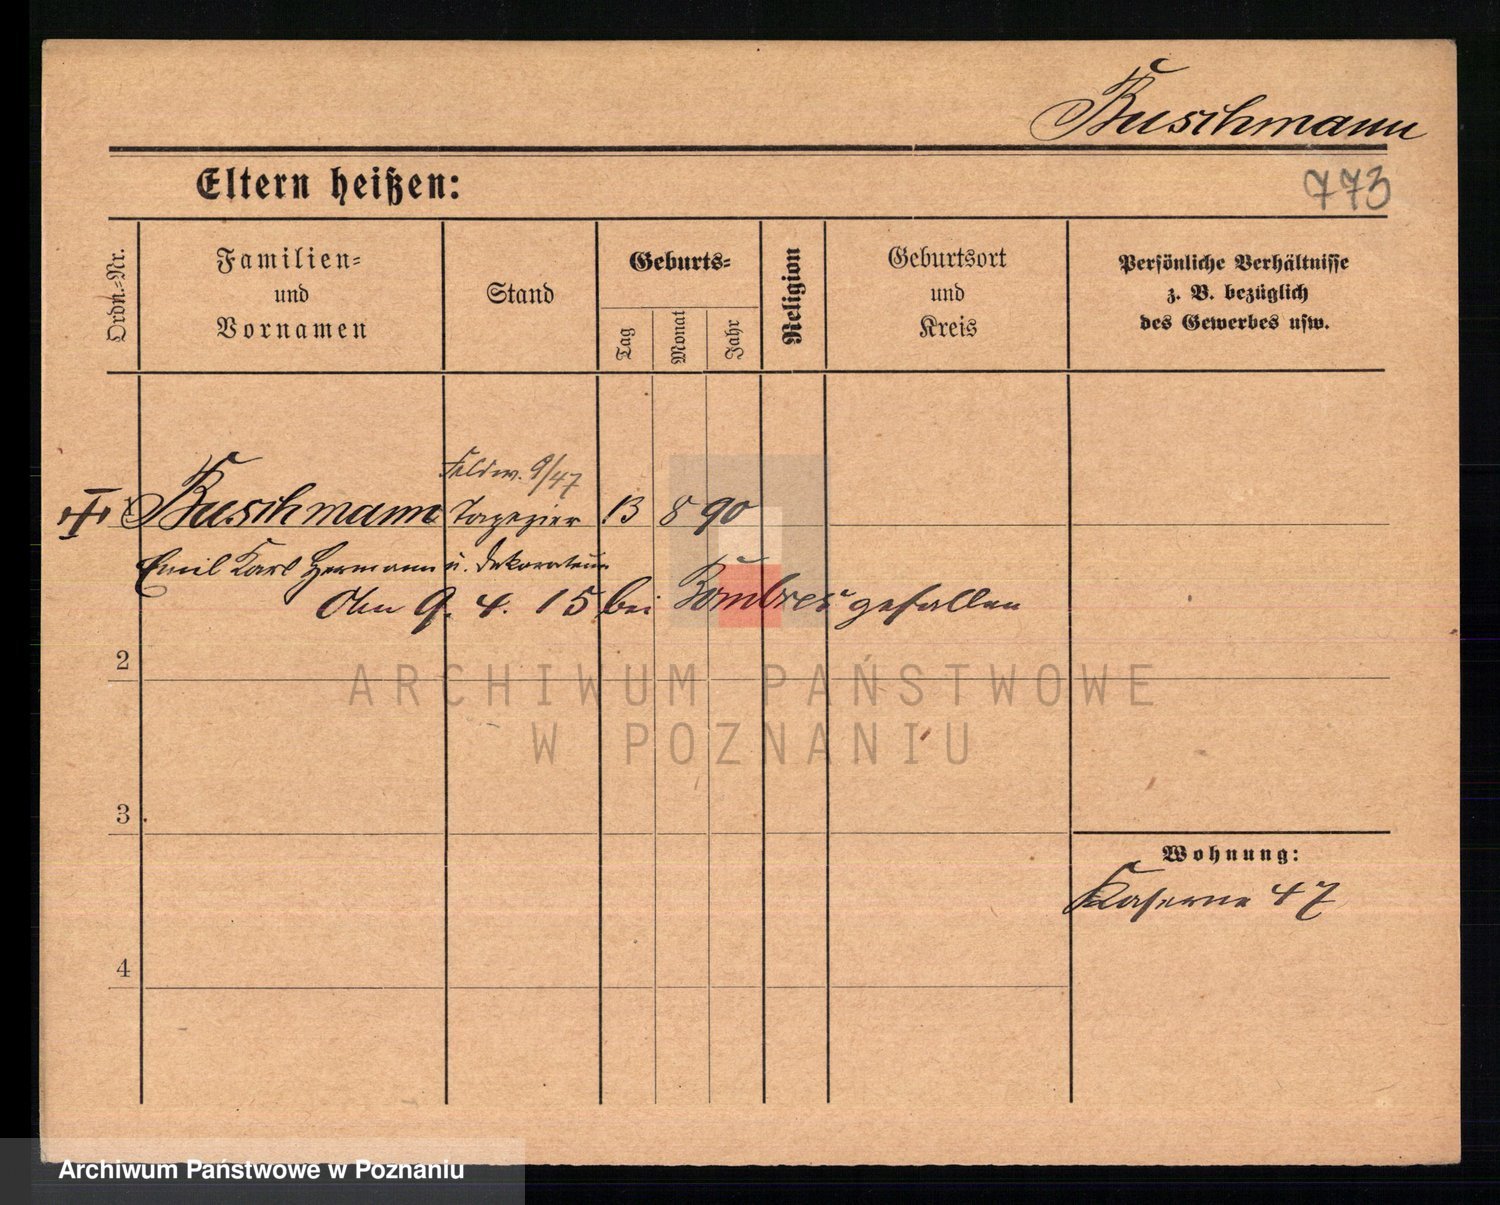 Buschmann
Eltern heißen:
773
Ordn.-Nr.
Familien-
und
Vornamen
Stand
Geburts-
Tag
Monat
Jahr
Religion
Geburtsort
und
Kreis
Persönliche Verhältnisse
z. B. bezüglich
des Gewerbes usw.
Feldw. 9/47
1 Buschmann Tapezier 13 8 90
Emil Karl Hermann u. Dekorateur
Am 9. 4. 15 bei gefallen
2
ARCHIWUM PAŃSTWOWE
W POZNANIU
3
Wohnung:
Kaserne 47
4
Archiwum Państwowe w Poznaniu